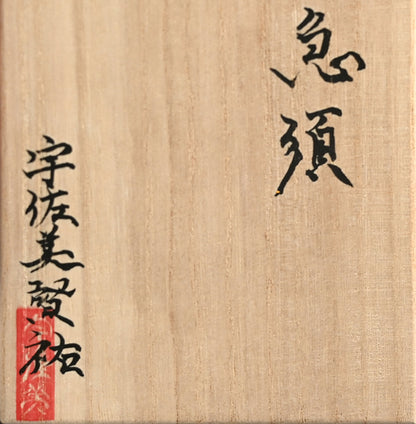 急須
宇佐美祐